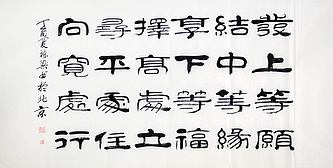 發上等願
結中等緣
享下等福
擇高處立
尋平處住
向寬處行
丁酉夏書於北京